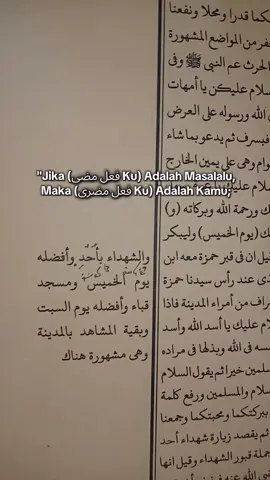 كما قدرا ومحلا ونفعنا
فر من المواضع المشهورة
الحرث عم النبي ﷺ وفى
سلام عليكن يا أمهات
الله ورسوله على العرض
فيسرف ثم يدعو بما شاء
وام وهى على يمين الخارج
"Jika (فعل مضى Ku) Adalah Masalalu,
Maka (فعل مضرى Ku) Adalah Kamu;"
ك ورحمة الله وبركاته (و)
ك (يوم الخميس) وليبكر
قيل ان فى قبر حمزة معه ابن
ذى عند رأس سيدنا حمزة
راف من أمراء المدينة فاذا
لام عليك يا أسد الله وأسد
نفسه فى الله وبذلها فى مراده
سلمين خيرا ثم يقول السلام
لام والمسلمين ورفع كلمة
ببركتكما ومحبتكما وجمعنا
ثم يقصد زيارة شهداء أحد
جملة قبور الشهداء وقيل انها
والشهداء بأحد وأفضله
يوم الخميس ومسجد
قباء وأفضله يوم السبت
وبقية المشاهد بالمدينة
وهى مشهورة هناك